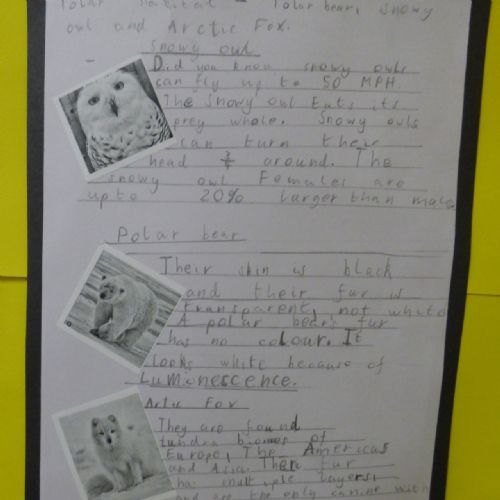 Polar habitat - Polar bear, snowy
owl and Arctic Fox.
Snowy owl
- Did you know snowy owls
can fly up to 50 MPH.
The Snowy owl Eats its
prey whole. Snowy owls
can turn their
head 3/4 around. The
snowy owl Females are
upto 20% larger than male
Polar bear
Their skin is black
and their fur is
transparent, not white
A polar bear's fur
has no colour. It
looks white because of
Luminescence.
Artic Fox
They are found
tundra biomes of
Europe, The Americas
and Asia. Their fur
has multiple layers,
and are the only canine with